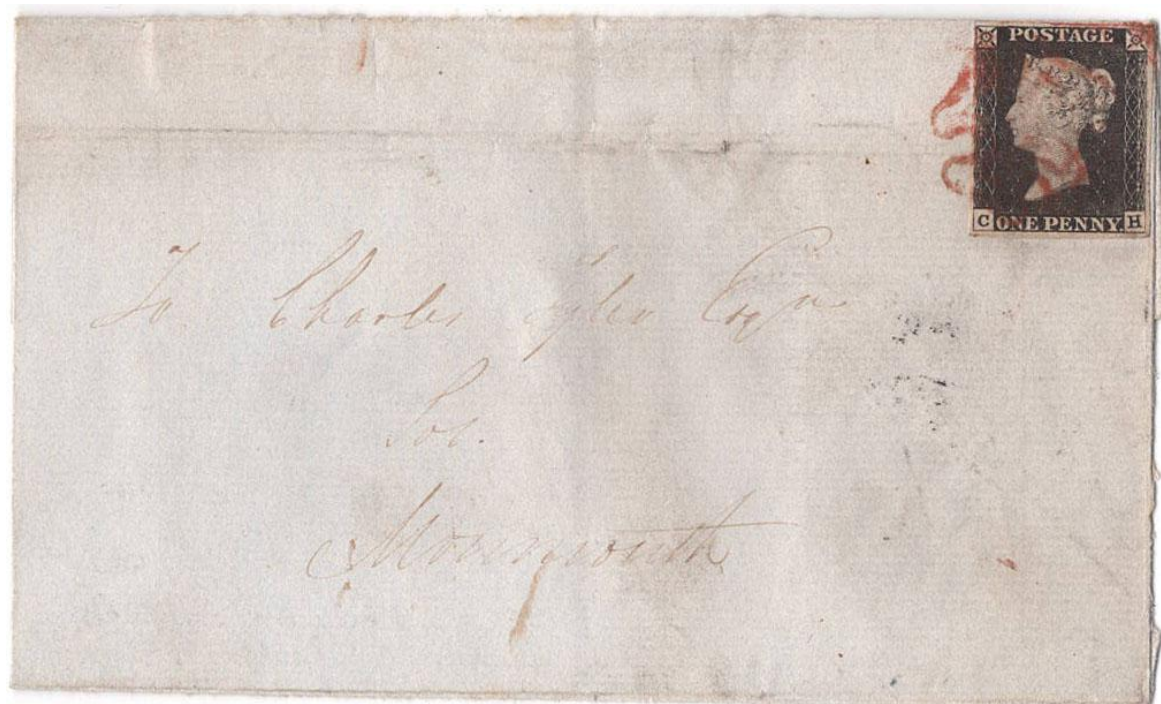 POSTAGE
C ONE PENNY. H
To Charles Esqre
Sol.
Monmouth